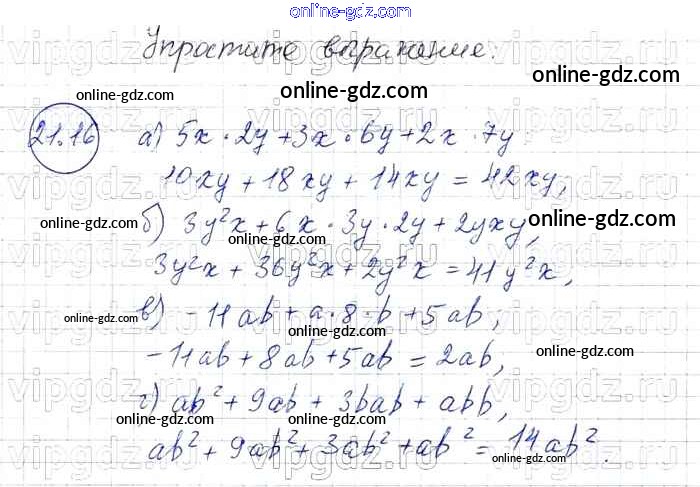 online-gdz.com
Упростите выражение.
online-gdz.com
online-gdz.com
21.16 а) 5x · 2y + 3x · 6y + 2x · 7y
10xy + 18xy + 14xy = 42xy,
online-gdz.com
online-gdz.com
online-gdz.com
б) 3y²x + 6x · 3y · 2y + 2yxy,
3y²x + 36y²x + 2y²x = 41y²x,
online-gdz.com
в) -11ab + a · 8 · b + 5ab,
online-gdz.com
-11ab + 8ab + 5ab = 2ab,
online-gdz.com
г) ab² + 9ab + 3bab + abb,
online-gdz.com
online-gdz.com
ab² + 9ab² + 3ab² + ab² = 14ab².
vipgdz.com